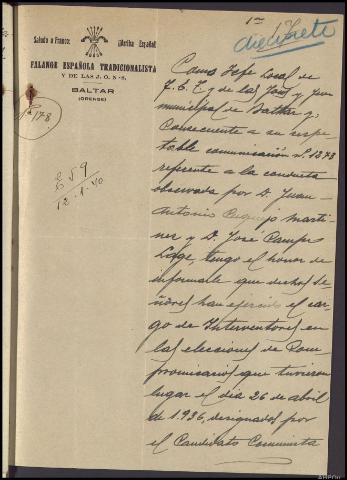 Saludo a Franco: ¡Arriba España!
FALANGE ESPAÑOLA TRADICIONALISTA
Y DE LAS J. O. N-S.
BALTAR
(ORENSE)
178
E 59
12-1-40
diecisiete
Como Jefe Local de
F. E. T. y de las Jons y Juez
municipal de Baltar y
Consecuente a su respe-
table comunicación nº 1273
referente a la conducta
observada por D. Juan
Antonio Martí-
nez y D. Jose Campos
tengo el honor de
informarle que dichos Se-
ñores han ejercido el car-
go de Interventores en
las elecciones de Com-
promisarios que tuvieron
lugar el dia 26 de abril
de 1.936, designados por
el Candidato Comunista